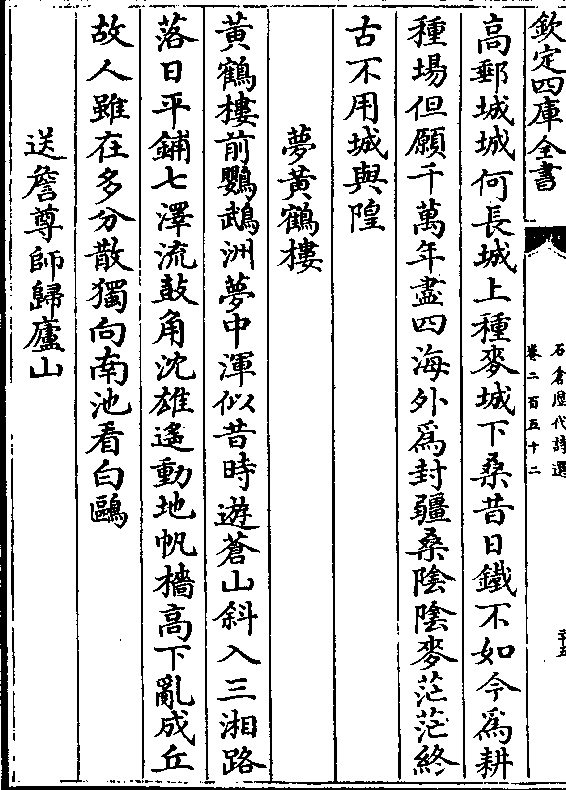 欽定四庫全書
石倉歴代詩選
卷二百五十二
高郵城城何長城上種麥城下桑昔日鐵不如今爲耕
種場但願千萬年盡四海外爲封疆桑陰陰麥茫茫終
古不用城與隍
夢黃鶴樓
黃鶴樓前鸚鵡洲夢中渾似昔時遊蒼山斜入三湘路
落日平鋪七澤流鼓角沈雄遙動地帆檣高下亂成丘
故人雖在多分散獨向南池看白鷗
送詹尊師歸廬山